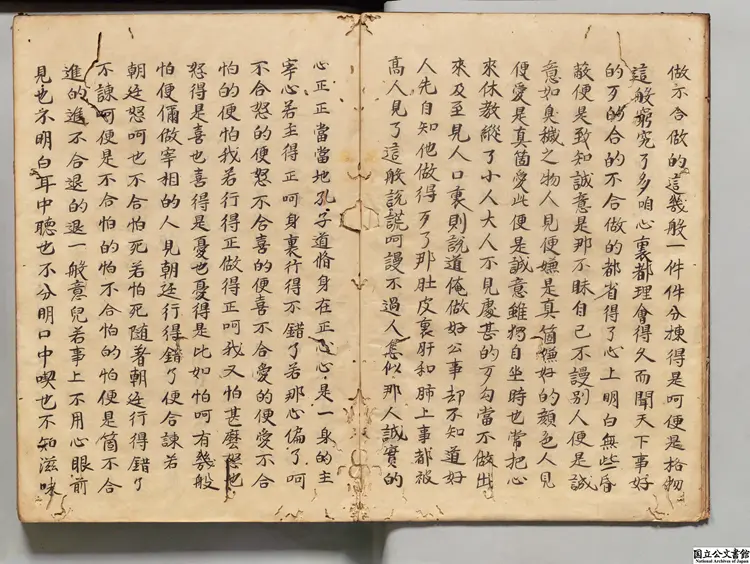 做不合做的這幾般一件件分揀得是呵便是格物
這般窮究了多咱心裏都理會得久而聞天下事好
的歹的合的不合做的都省得了心上明白無些昏
蔽便是致知誠意是那不昧自己不謾別人便是誠
意如臭穢之物人見便嫌是真箇嫌好的顏色人見
便愛是真箇愛此便是誠意雖獨自坐時也常把心
來休教縱了小人大人不見處甚的歹勾當不做出
來及至見人口裏則說道俺做好公事却不知道好
人先自知他做得歹了那肚皮裏肝和肺上事都被
高人見了這般說謊呵謾不過人怎似那人誠實的
心正正當當地孔子道脩身在正心心是一身的主
宰心若主得正呵身裏行得不錯了若那心偏了呵
不合怒的便怒不合喜的便喜不合愛的便愛不合
怕的便怕我若行得正做得正呵我又怕甚麼怒也
怒得是喜也喜得是憂也憂得是比如怕呵有幾般
怕便儞做宰相的人見朝廷行得錯了便合諫若
朝廷怒呵也不合怕死若怕死隨著朝廷行得錯了
不諫呵便是不合怕的怕不合怕的怕便是箇不合
進的進不合退的退一般意兒若事上不用心眼前
見也不明白耳中聽也不分明口中喫也不知滋味
国立公文書館
National Archives of Japan